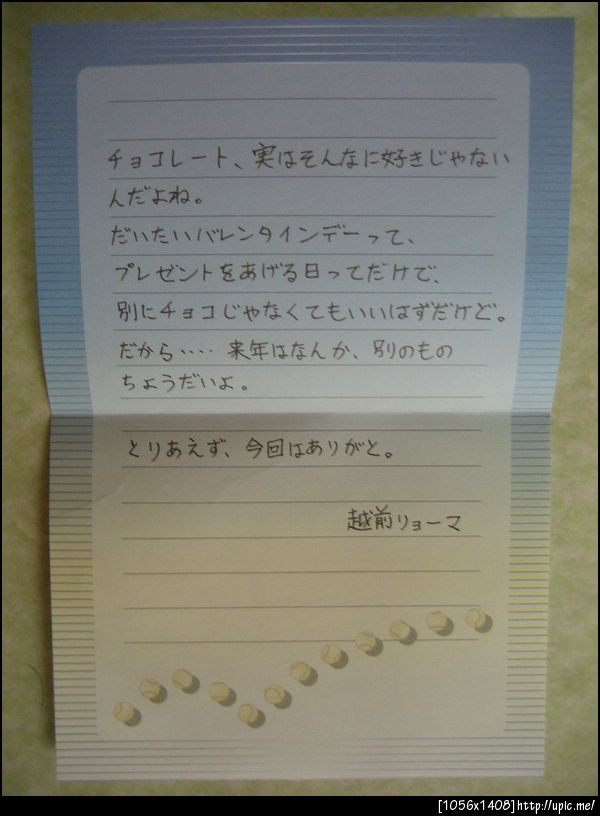 チョコレート、実はそんなに好きじゃない
んだよね。
だいたいバレンタインデーって、
プレゼントをあげる日ってだけで、
別にチョコじゃなくてもいいはずだけど。
だから‥‥ 来年はなんか、別のもの
ちょうだいよ。
とりあえず、今回はありがと。
越前リョーマ
[1056x1408]http://upic.me/